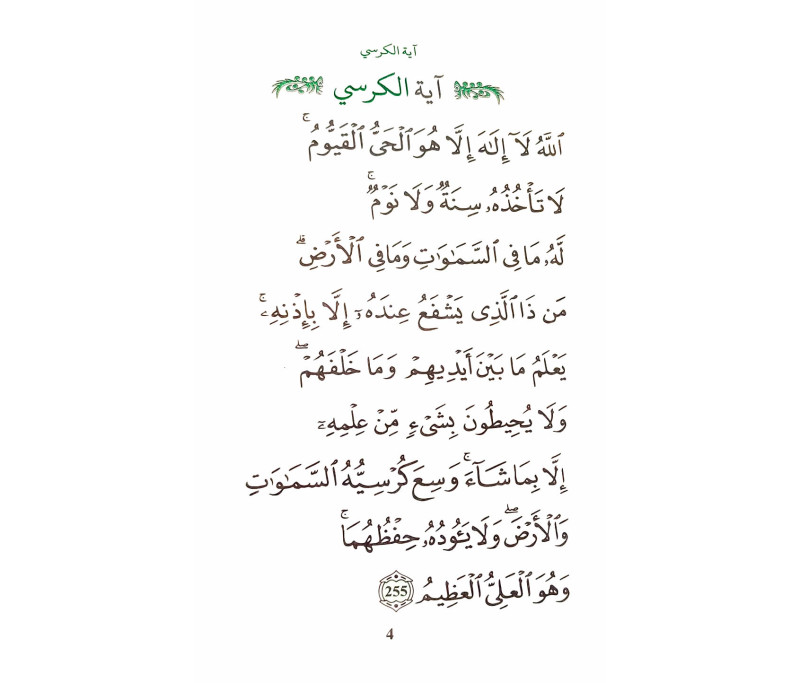 آية الكرسي
آية الكرسي
ٱللَّهُ لَآ إِلَٰهَ إِلَّا هُوَ ٱلْحَىُّ ٱلْقَيُّومُ ۚ
لَا تَأْخُذُهُۥ سِنَةٌ وَلَا نَوْمٌ ۚ
لَّهُۥ مَا فِى ٱلسَّمَٰوَٰتِ وَمَا فِى ٱلْأَرْضِ ۗ
مَن ذَا ٱلَّذِى يَشْفَعُ عِندَهُۥٓ إِلَّا بِإِذْنِهِۦ ۚ
يَعْلَمُ مَا بَيْنَ أَيْدِيهِمْ وَمَا خَلْفَهُمْ ۖ
وَلَا يُحِيطُونَ بِشَىْءٍ مِّنْ عِلْمِهِۦٓ
إِلَّا بِمَا شَآءَ ۚ وَسِعَ كُرْسِيُّهُ ٱلسَّمَٰوَٰتِ
وَٱلْأَرْضَ ۖ وَلَا يَـُٔودُهُۥ حِفْظُهُمَا ۚ
وَهُوَ ٱلْعَلِىُّ ٱلْعَظِيمُ 255
4